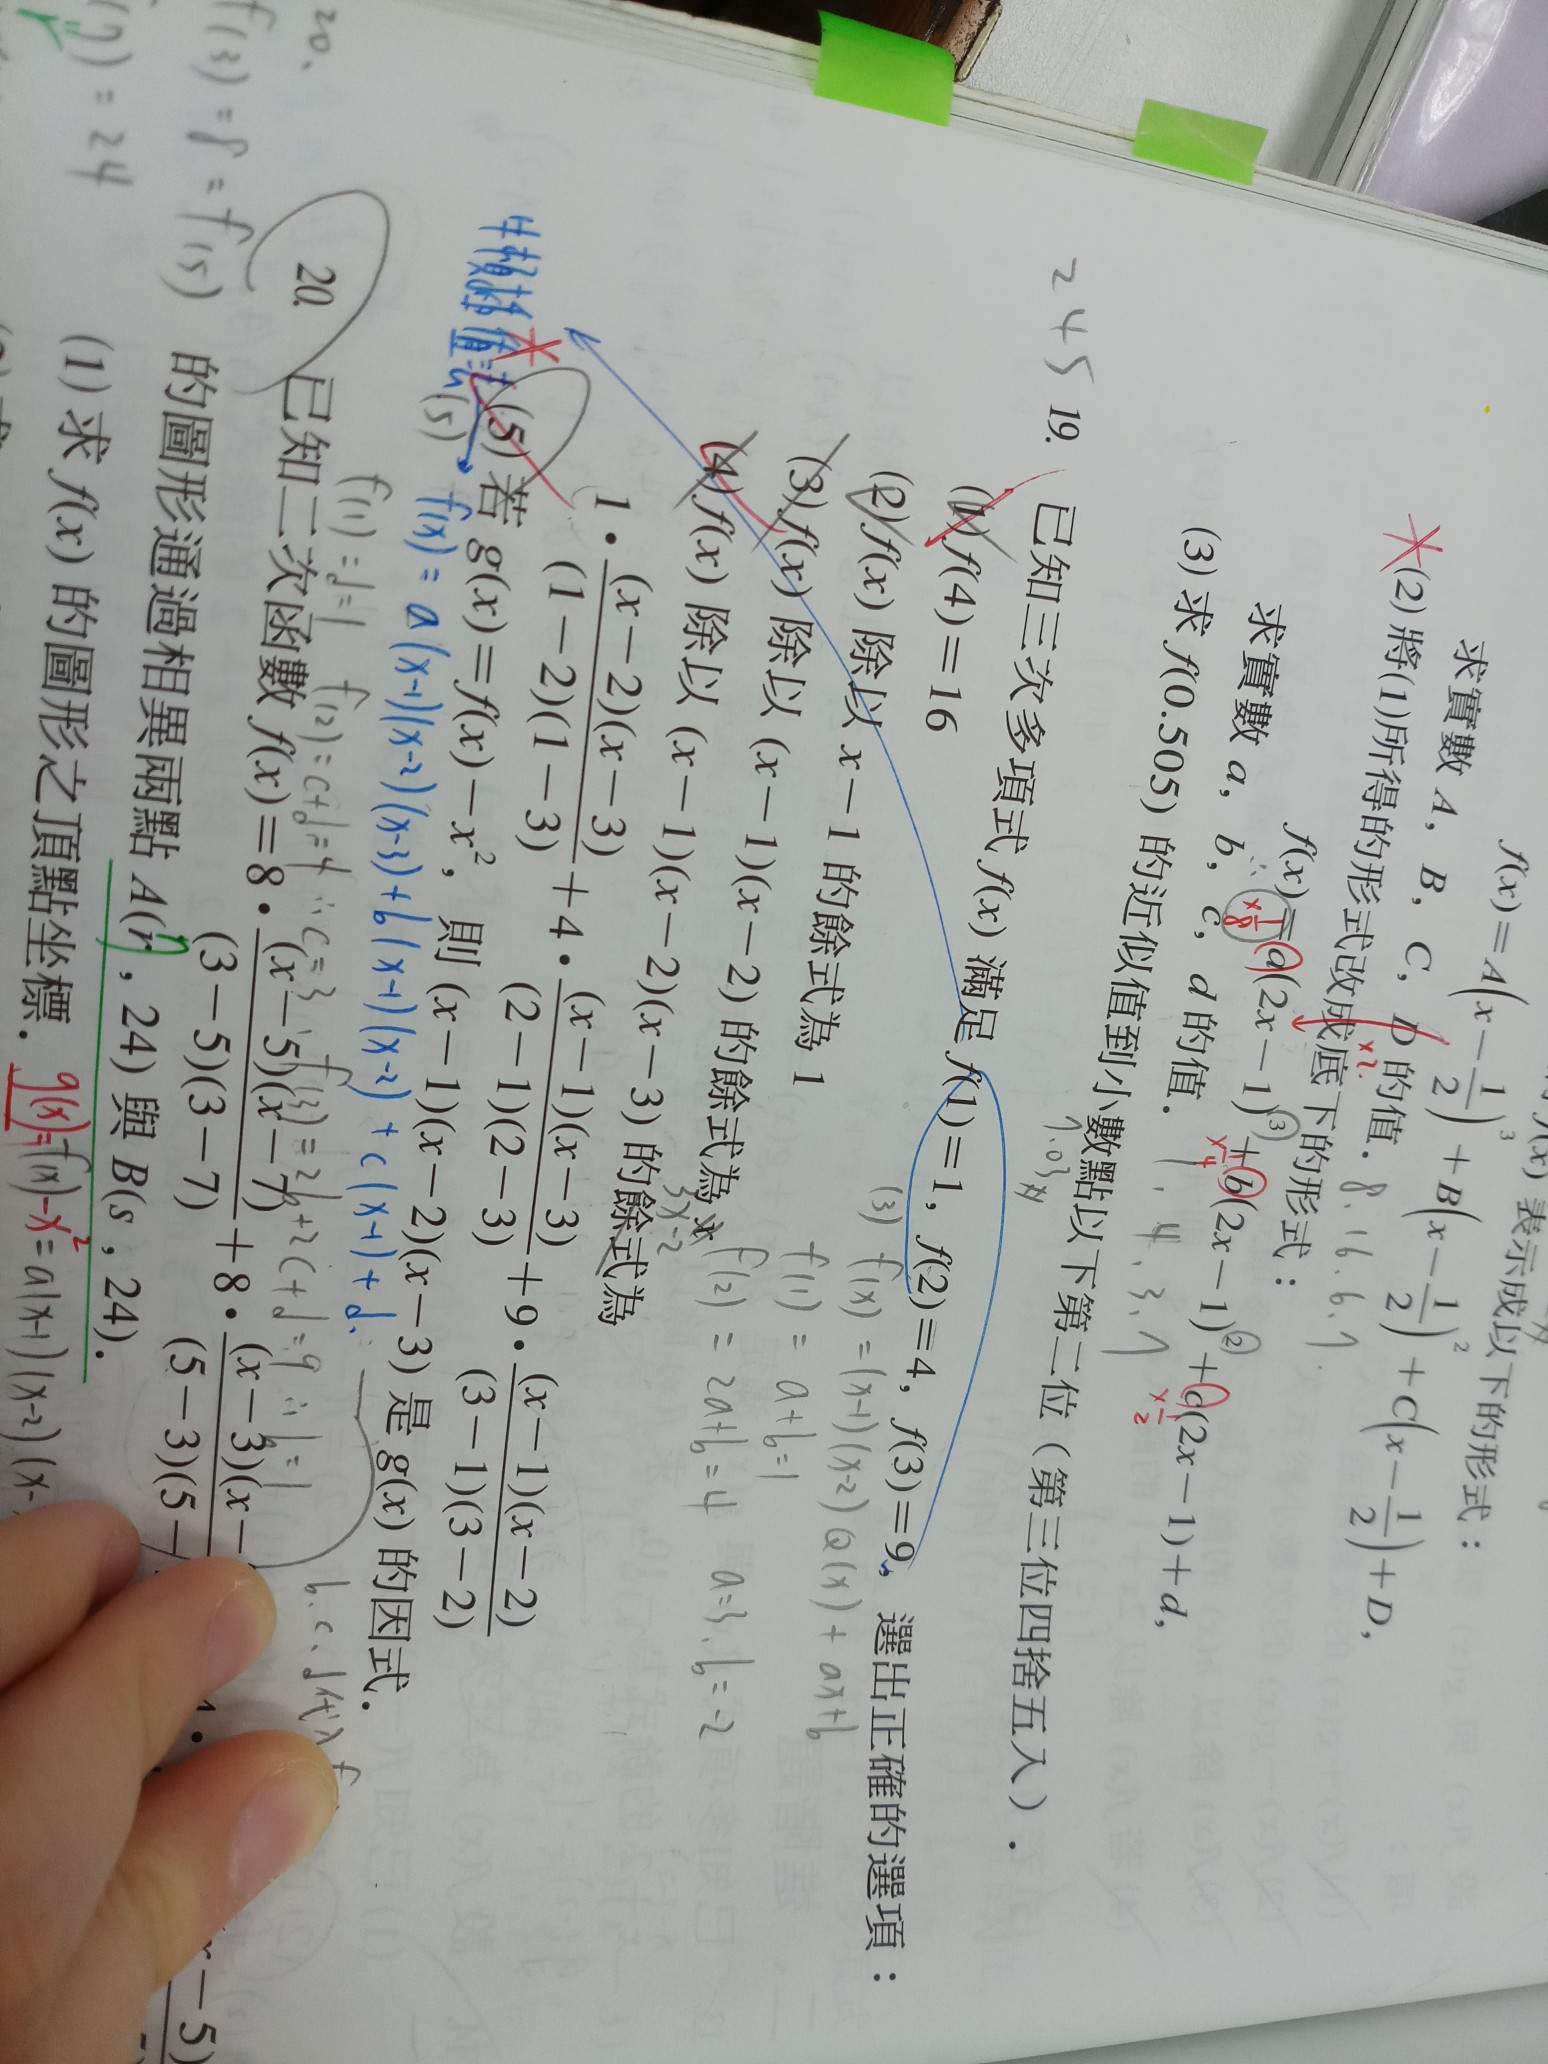 f(x)=A(x−1/2)³+B(x−1/2)²+C(x−1/2)+D,
求實數 A, B, C, D 的值. 8.16.6.7.
(2)將(1)所得的形式改成底下的形式:
f(x)=a(2x−1)³+b(2x−1)²+c(2x−1)+d,
求實數 a, b, c, d 的值. 1.4.3.7
(3)求 f(0.505) 的近似值到小數點以下第二位(第三位四捨五入).
7.03
245
19. 已知三次多項式 f(x) 滿足 f(1)=1, f(2)=4, f(3)=9, 選出正確的選項:
(1) f(4)=16
(2) f(x) 除以 x−1 的餘式為 1
(3) f(x) 除以 (x−1)(x−2) 的餘式為 x
3x-2
(3) f(x) = (x-1)(x-2)Q(x)+ax+b
f(1) = a+b=1
f(2) = 2a+b=4 a=3.b=-2
(4) f(x) 除以 (x−1)(x−2)(x−3) 的餘式為
1•(x−2)(x−3)/(1−2)(1−3)+4•(x−1)(x−3)/(2−1)(2−3)+9•(x−1)(x−2)/(3−1)(3−2)
(5) 若 g(x)=f(x)−x², 則 (x−1)(x−2)(x−3) 是 g(x) 的因式.
(5) f(x) = a(x-1)(x-2)(x-3)+b(x-1)(x-2)+c(x-1)+d.
f(1)=d=1 f(2)=c+d=4 ∴c=3 f(3)=2b+2c+d=9 ∴b=1 b.c.d代入f
20. 已知二次函數 f(x)=8•(x−5)(x−7)/(3−5)(3−7)+8•(x−3)(x−
(5−3)(5−
x−5)
的圖形通過相異兩點 A(r, 24) 與 B(s, 24).
(1)求 f(x) 的圖形之頂點坐標.
g(x)=f(x)-x²=a(x-1)(x-2)(x-
20.
f(3)=8=f(5)
(7)=24